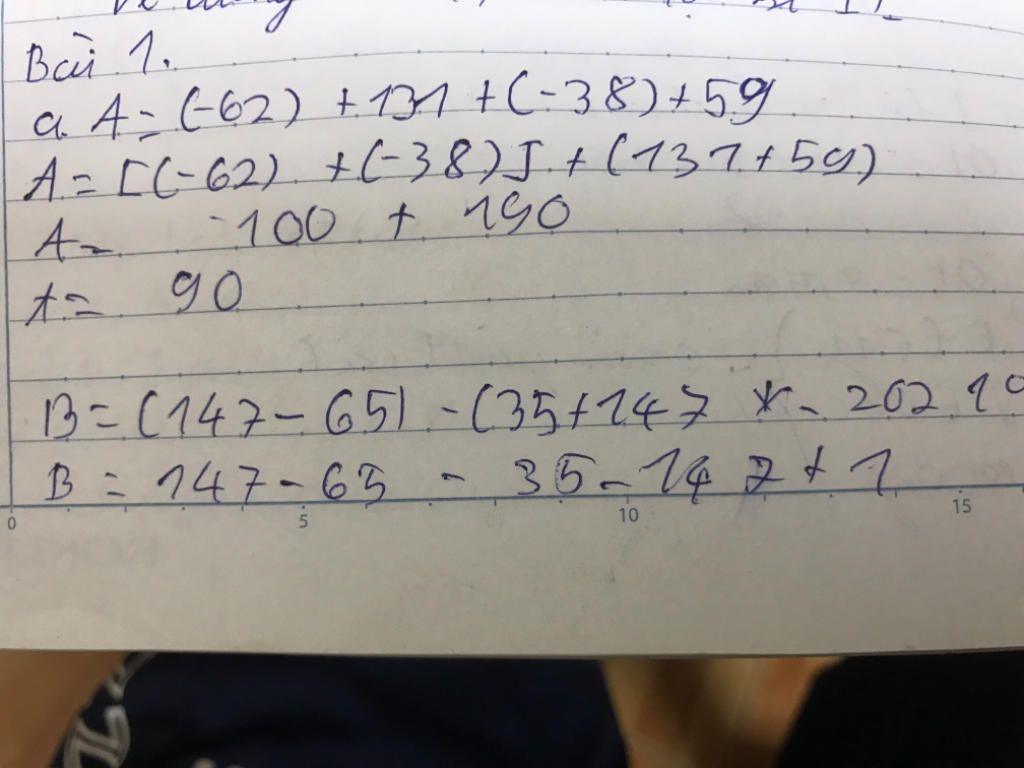 Bài 1.
a. A = (-62) + 131 + (-38) + 59
A = [(-62) + (-38)] + (131 + 59)
A = -100 + 190
A = 90
B = (147 - 65) - (35 + 147 - 2021º
B = 147 - 65 - 35 - 147 + 1
0 5 10 15